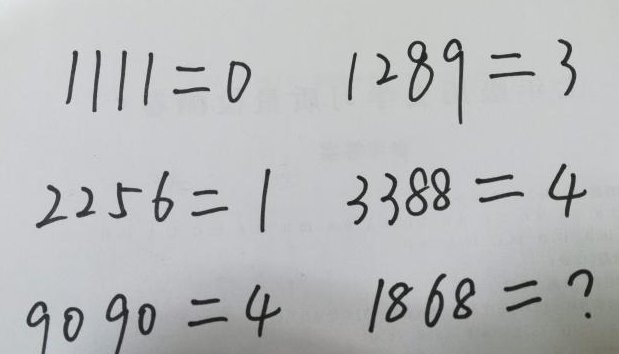 1111=0 1289=3
2256=1 3388=4
9090=4 1868=?